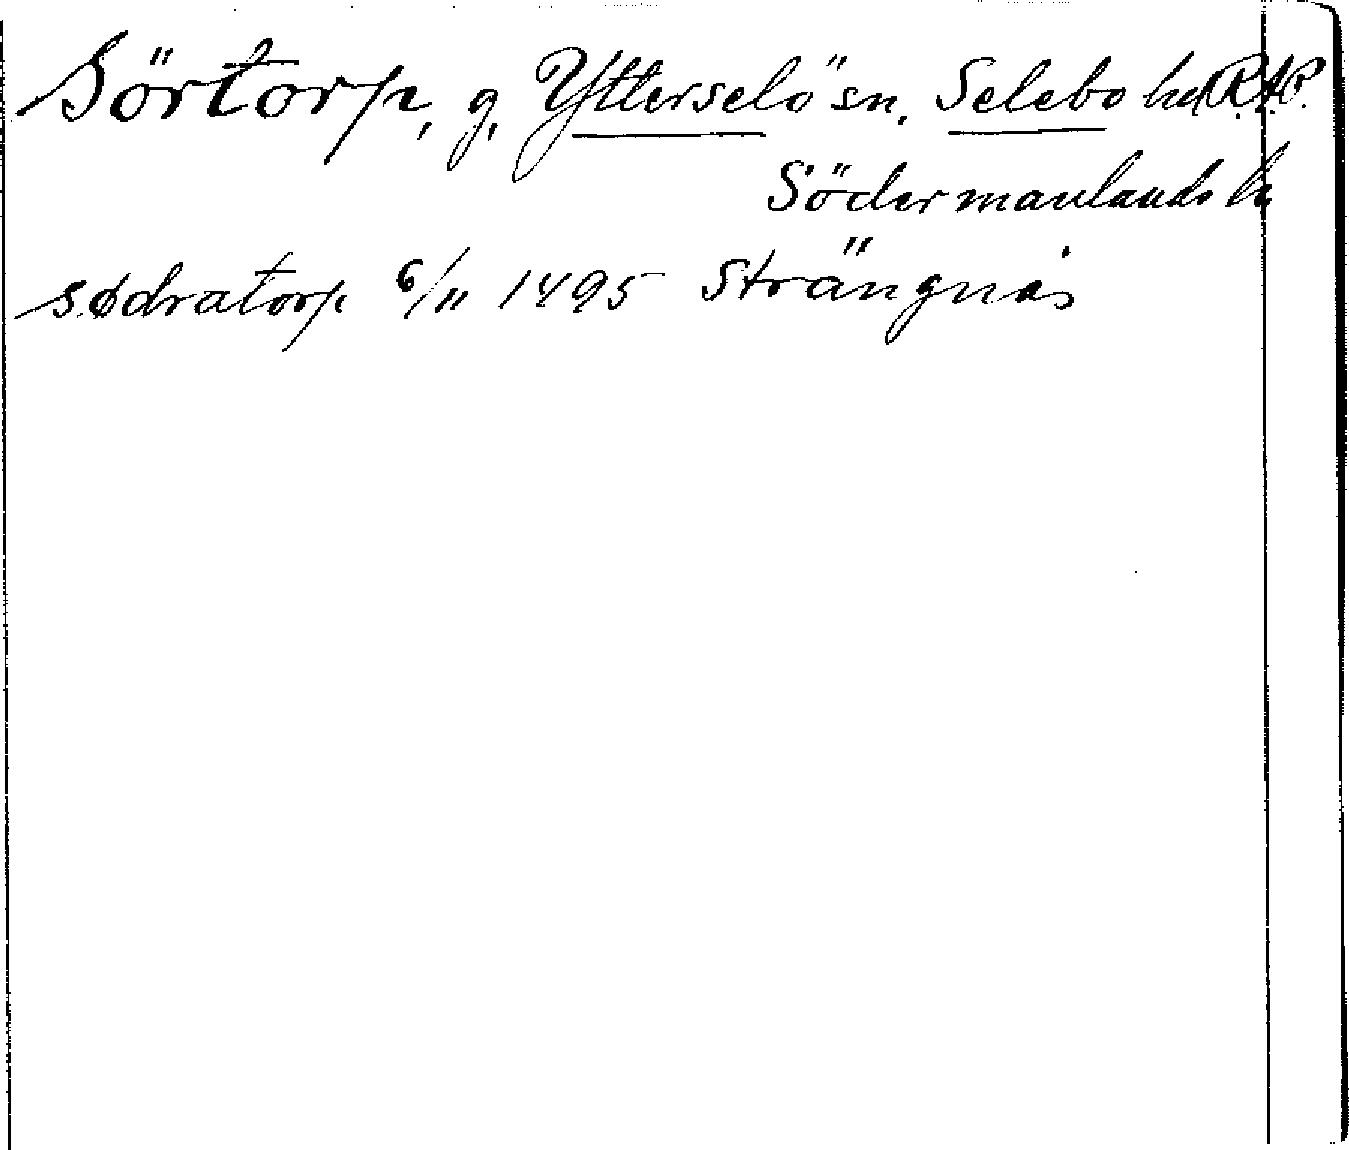 Sörtorp, g, Ytterselö sn, Selebo hd R.A.P.
Södermanlands ln
sødratorp 6/11 1495 Strängnäs